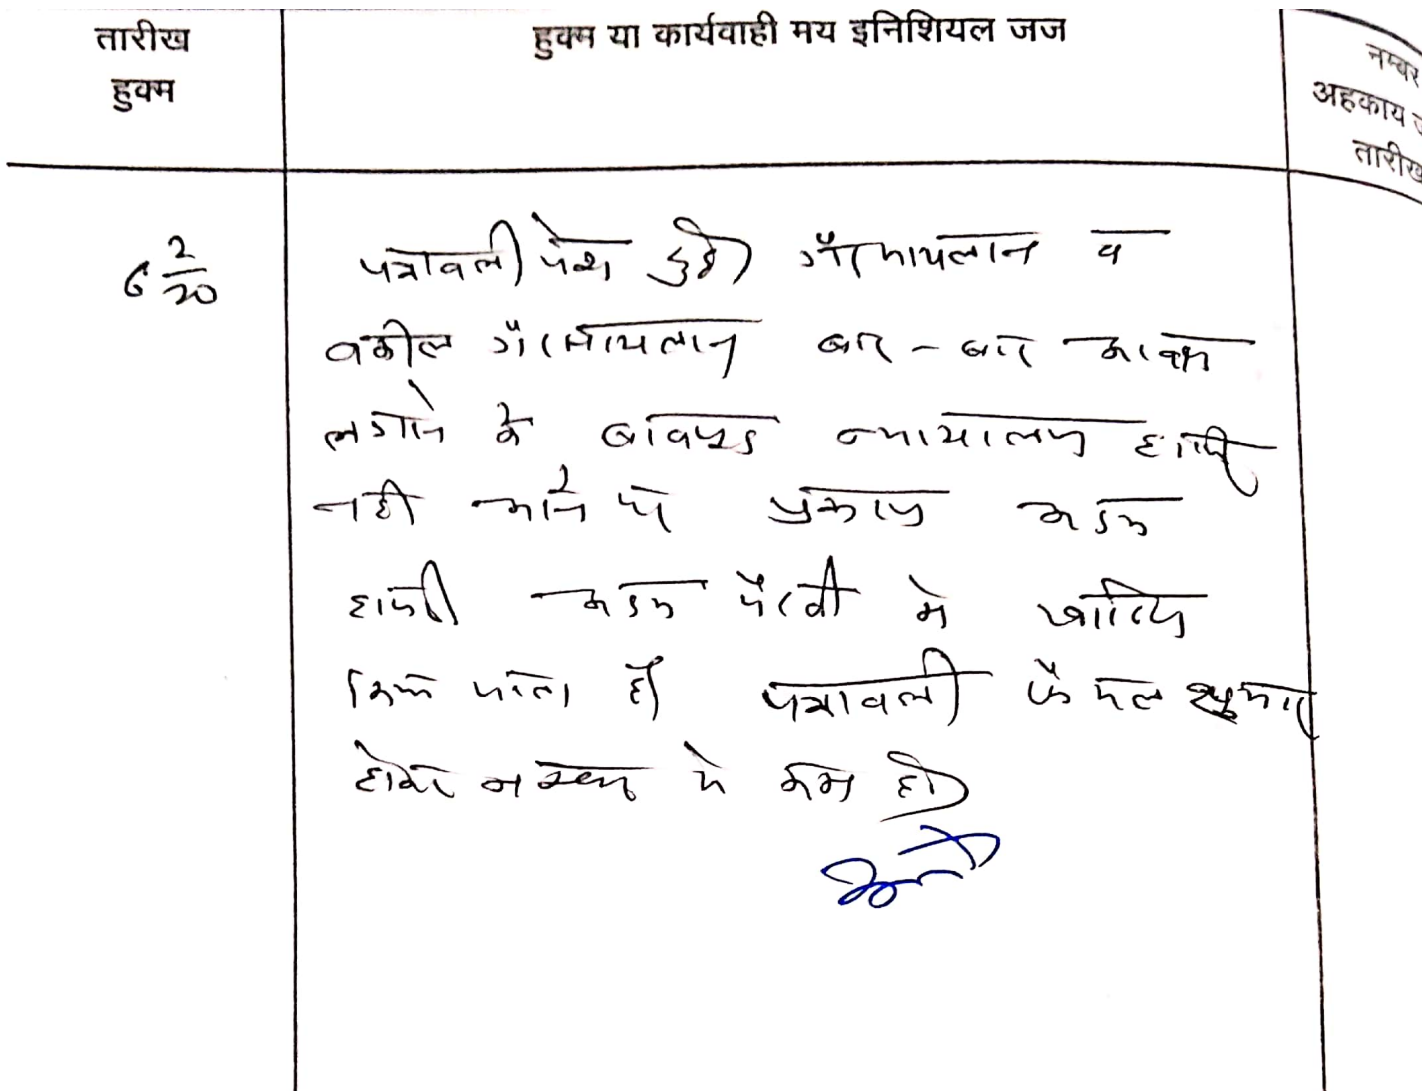 तारीख
हुक्म
हुक्म या कार्यवाही मय इनिशियल जज
नम्बर
अहकाय
तारीख
6 2/20
पत्रावली पेश हुई। गैरसायलान व
वकील गैरसायलान बार - बार आवाज
लगाने के बावजूद न्यायालय हाजिर
नही आने पर प्रकरण अदम
हाजरी अदम पैरवी में खारिज
किया जाता है। पत्रावली फैसल शुमार
होकर नम्बर से कम हो।